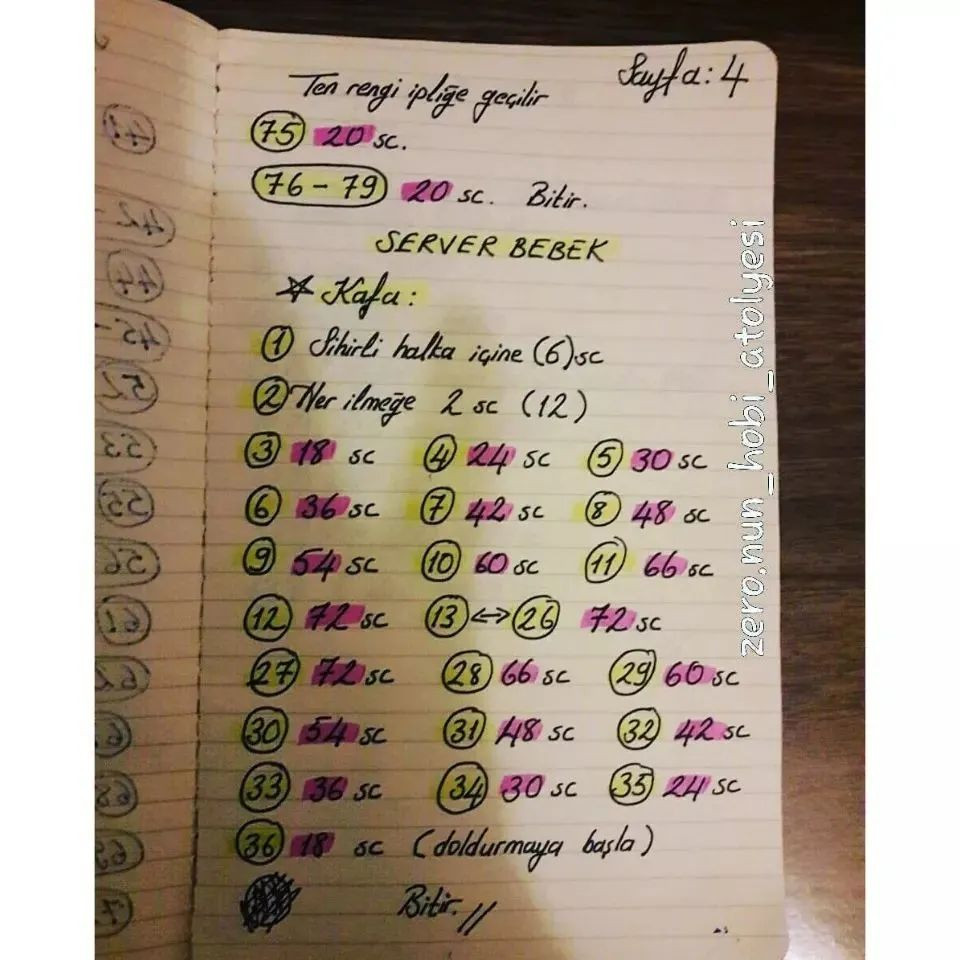 Sayfa: 4
Ten rengi ipliğe geçilir
75 20 sc.
76 - 79 20 sc. Bitir.
SERVER BEBEK
Kafa:
1 Sihirli halka içine (6) sc
2 Her ilmeğe 2 sc (12)
3 18 sc 4 24 sc 5 30 sc
6 36 sc 7 42 sc 8 48 sc
9 54 sc 10 60 sc 11 66 sc
12 72 sc 13 ↔ 26 72 sc
27 72 sc 28 66 sc 29 60 sc
30 54 sc 31 48 sc 32 42 sc
33 36 sc 34 30 sc 35 24 sc
36 18 sc (doldurmaya başla)
Bitir. //
zero.nun_hobi_atolyesi